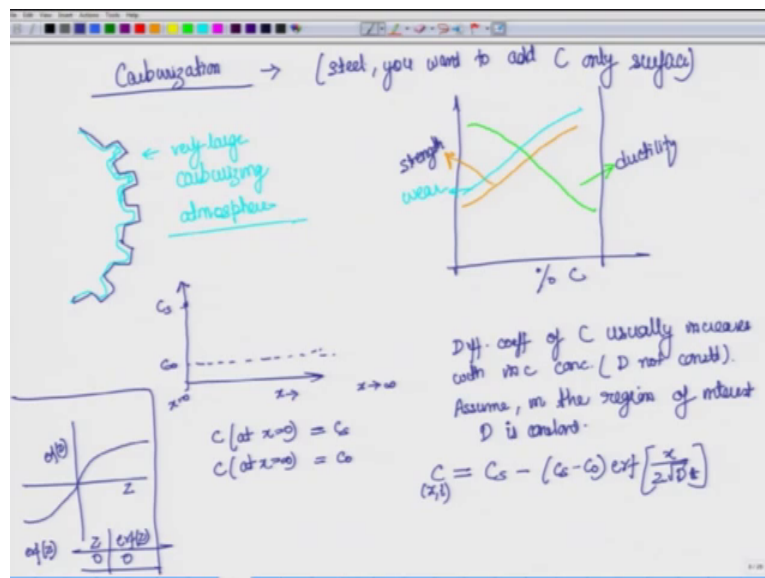 Carburization → (steel, you want to add C only surface)
← very large
carburizing
atmosphere
strength
wear
ductility
% C
Cs
C0
x=0
x→
x→∞
C(at x=0) = Cs
C(at x=∞) = C0
Diff. coeff of C usually increases
with inc conc (D not const).
Assume, in the region of interest
D is constant.
C = Cs - (Cs-C0) erf [x / 2√Dt]
(x,t)
erf(z)
z
erf(z)
z | erf(z)
0 | 0